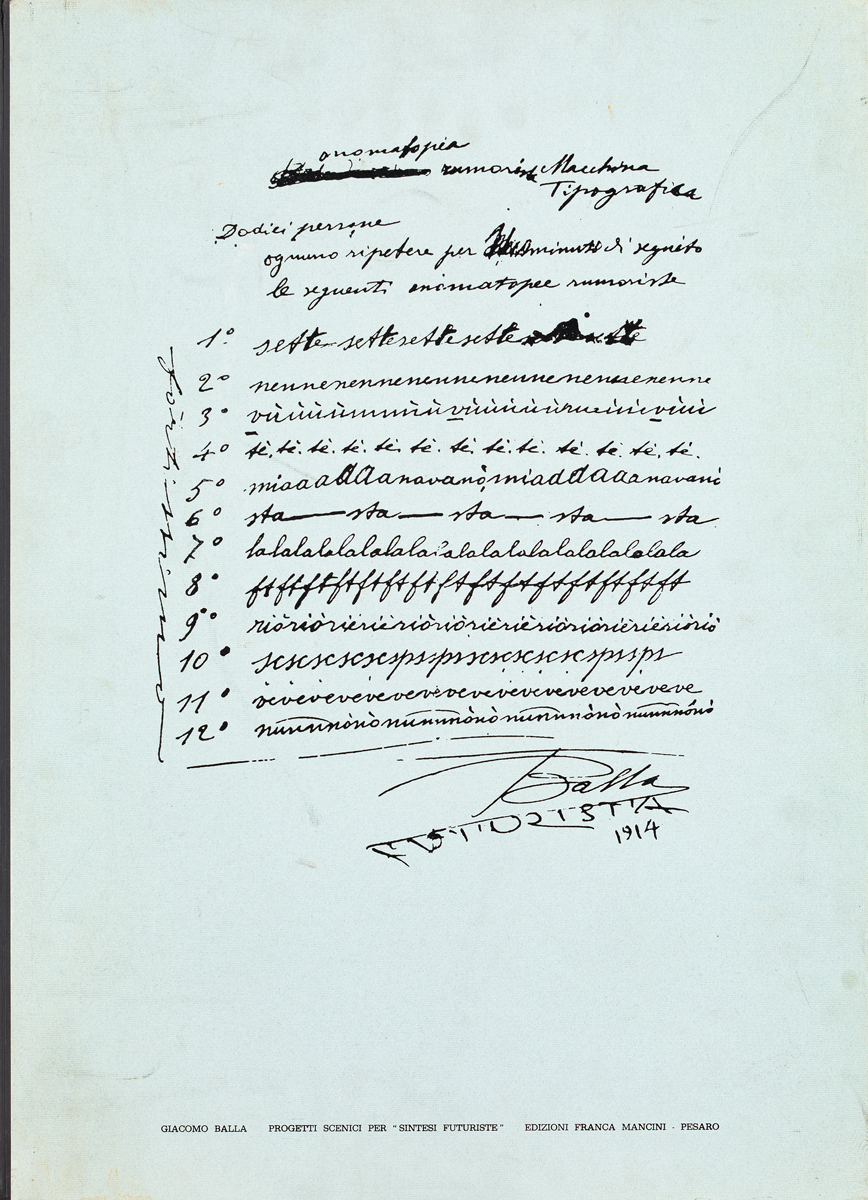 onomatopea
rumorista Macchina
Tipografica
Dodici persone
ognuno ripetere per minuti di seguito
le seguenti onomatopee rumoriste
fortissimo
1° settesettesettesettesette
2° nennenennenennenennenennenenne
3° vùùùùùùmmùùvùùùùùùùùùùùvùùù
4° tè. tè. tè. tè. tè. tè. tè. tè. tè. tè. tè. tè.
5° miaaaaaaanavanòmiaaaaaaanavanò
6° sta—sta—sta—sta—sta
7° lalalalalalalalalalalalalalalalala
8° ftftftftftftftftftftftftftftft
9° riòriòrièrièriòriòrièrièriòriòrièrièriòriò
10° scscscscscspspspscscscscscspspsps
11° vèvèvèvèvèvèvèvèvèvèvèvèvèvèvè
12° nunnunnònònunnunnònònunnunnònònunnunnònò
Balla
FUTURISTA
1914
GIACOMO BALLA PROGETTI SCENICI PER "SINTESI FUTURISTE" EDIZIONI FRANCA MANCINI - PESARO